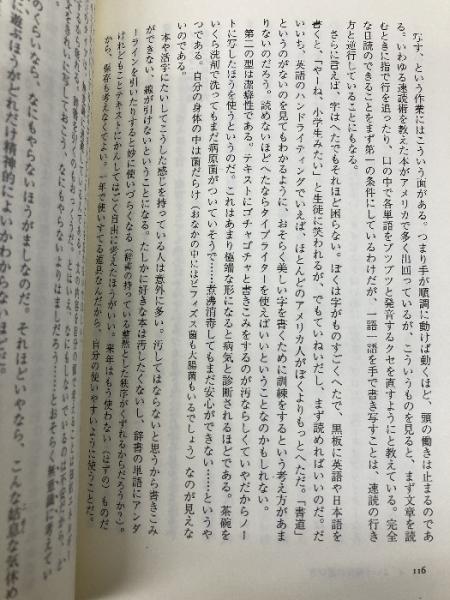 なす、という作業にはこういう面がある。つまり手が順調に動けば動くほど、頭の働きは止まるのであ
る。いわゆる速読術を教えた本がアメリカで多く出回っているが、こういうものを見ると、まず文章を読
むときに指で行を追ったり、口の中で各単語をブツブツと発音するクセを直すようにと教えている。完全
な目読のできることをまず第一の条件にしているわけだが、一語一語を手で書き写すことは、速読の行き
方と逆行していることにもなる。
さらに言えば、字はへたでもそれほど困らない。ぼくは字がものすごくへたで、黒板に英語や日本語を
書くと、「やーね、小学生みたい」と生徒に笑われるが、でもていねいだし、まず読めればいいのだ。だ
いいち、英語のハンドライティングでいえば、ほとんどのアメリカ人がぼくよりもっとへただ。「書道」
というのがないのを見てもわかるように、おそらく美しい字を書くために訓練をするという考え方があま
りないのだろう。読めないほどへたならタイプライターを使えばいいということなのかもしれない。
第二の型は潔癖性である。テキストにゴチャゴチャと書きこみをするのが汚ならしくていやだからノー
トに写したほうを使うというのだ。これはあまり極端な形になると病気と診断されるほどである。茶碗を
いくら洗剤で洗ってもまだ病原菌がついていそうで……煮沸消毒してもまだ安心ができない……というや
つである。自分の身体の中は菌だらけ（おなかの中にはビフィズス菌も大腸菌もいるでしょう）なのが見えな
いのである。
本や活字にたいしてこうした感じを持っている人は意外に多い。汚してはならないと思うから書きこみ
ができない、線が引けないということになる。たしかに好きな本は汚したくないし、辞書の単語にアンダ
ーラインを引いたりすると妙に使いづらくなる（辞書の持っている整然とした秩序がくずれるからだろうか？）。
けれどもことテキストにかんしてはごく自由に考えたほうがいい。来年はもう使わない（はずの）ものだ
から、保存も考えなくてよい。一年で使いすてる道具なんだから、自分の使いやすいように使うことだ。
のくらいなら、なにもやらないほうがましなのだ。それほどいやなら、こんな姑息な気休め
に遊ぶほうがどれだけ精神的によいかわからないほどだ。
116